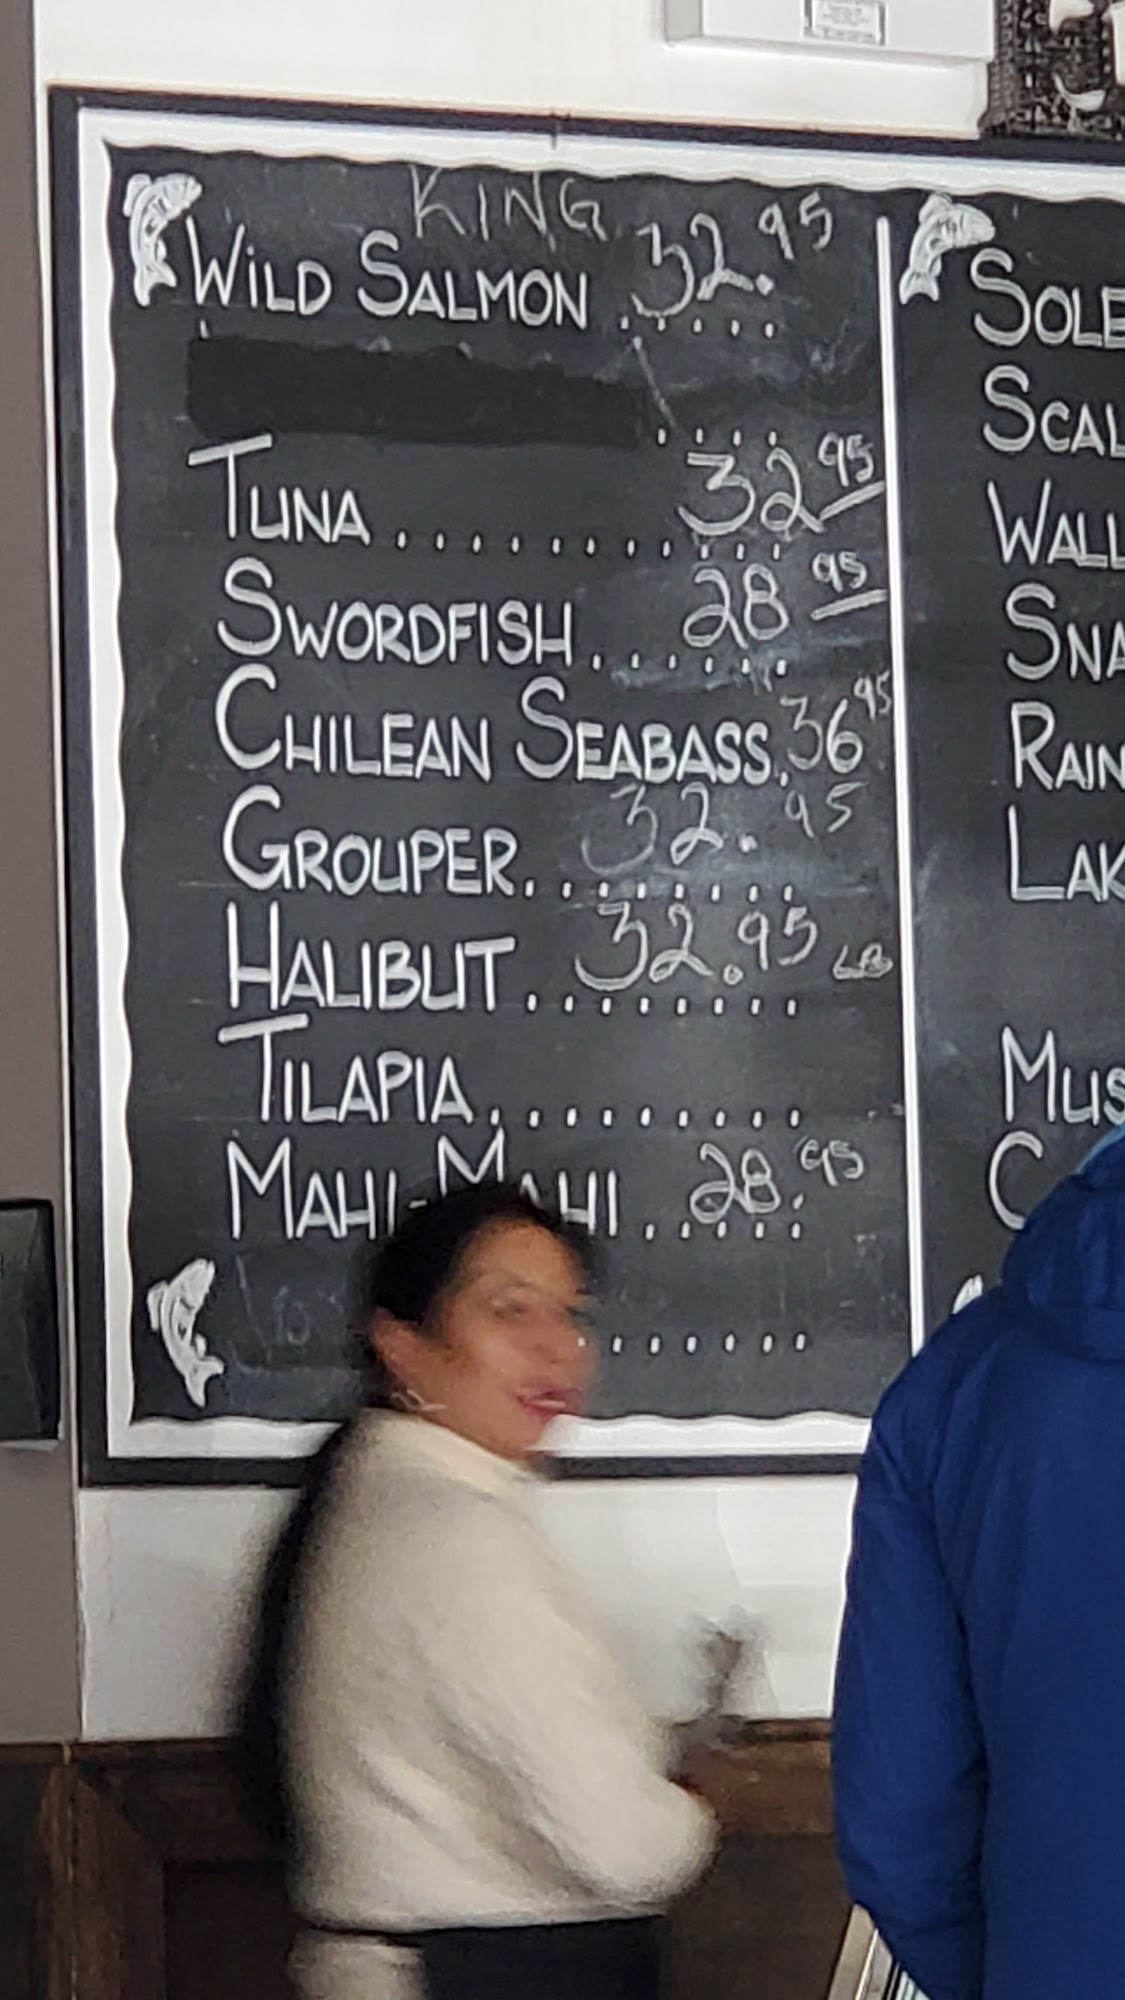 KING
WILD SALMON ..... 32.95
....
TUNA .......... 32 95
SWORDFISH ...... 28 95
CHILEAN SEABASS. 36 95
GROUPER ........ 32.95
HALIBUT ........ 32.95 LB
TILAPIA .........
MAHI-MAHI ..... 28.95
SOLE
SCAL
WALL
SNA
RAIN
LAK
MUS
C